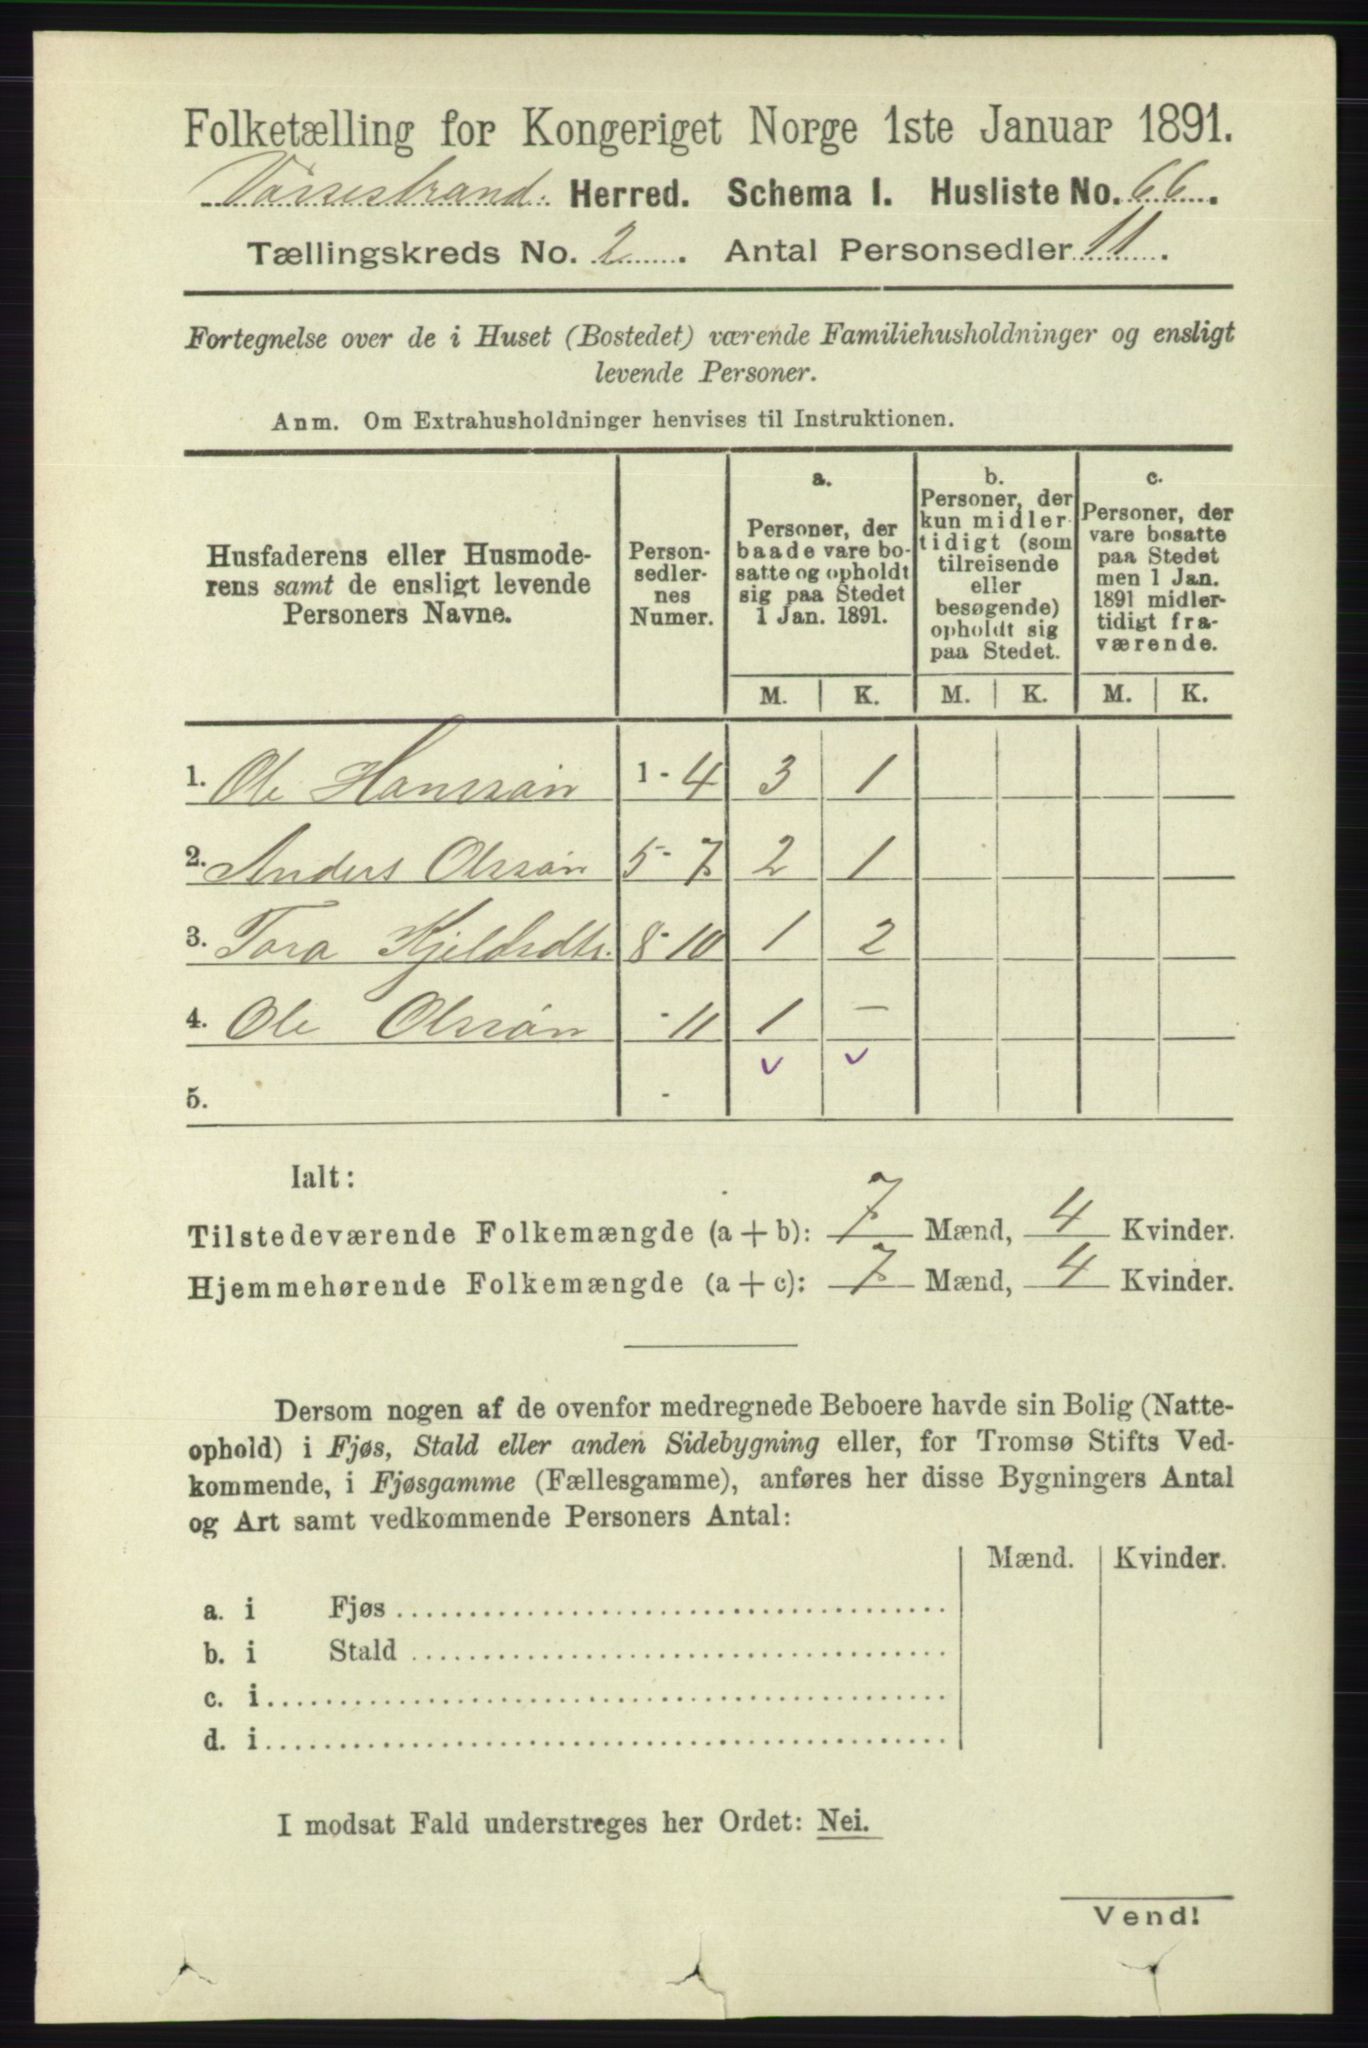 Folketælling for Kongeriget Norge 1ste Januar 1891.
Vossestrand. Herred. Schema I. Husliste No. 66.
Tællingskreds No. 2. Antal Personsedler 11.
Fortegnelse over de i Huset (Bostedet) værende Familiehusholdninger og ensligt
levende Personer.
Anm. Om Extrahusholdninger henvises til Instruktionen.
Husfaderens eller Husmode-
rens samt de ensligt levende
Personers Navne.
Person-
sedler-
nes
Numer.
a.
Personer, der
baade vare bo-
satte og opholdt
sig paa Stedet
1 Jan. 1891.
b.
Personer, der
kun midler-
tidigt (som
tilreisende
eller
besøgende)
opholdt sig
paa Stedet.
c.
Personer, der
vare bosatte
paa Stedet
men 1 Jan.
1891 midler-
tidigt fra-
værende.
M. K. M. K. M. K.
1. Ole Hanssøn 1-4 3 1
2. Anders Olssøn 5-7 2 1
3. Tora Kjelsdtr. 8-10 1 2
4. Ole Olssøn -11 1 —
5. -
Ialt:
Tilstedeværende Folkemængde (a + b): 7 Mænd, 4 Kvinder.
Hjemmehørende Folkemængde (a + c): 7 Mænd, 4 Kvinder.
Dersom nogen af de ovenfor medregnede Beboere havde sin Bolig (Natte-
ophold) i Fjøs, Stald eller anden Sidebygning eller, for Tromsø Stifts Ved-
kommende, i Fjøsgamme (Fællesgamme), anføres her disse Bygningers Antal
og Art samt vedkommende Personers Antal:
Mænd. Kvinder.
a. i Fjøs
b. i Stald
c. i
d. i
I modsat Fald understreges her Ordet: Nei.
Vend!